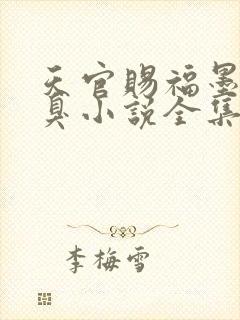 天官赐福墨
臭小说全集
李梅雪